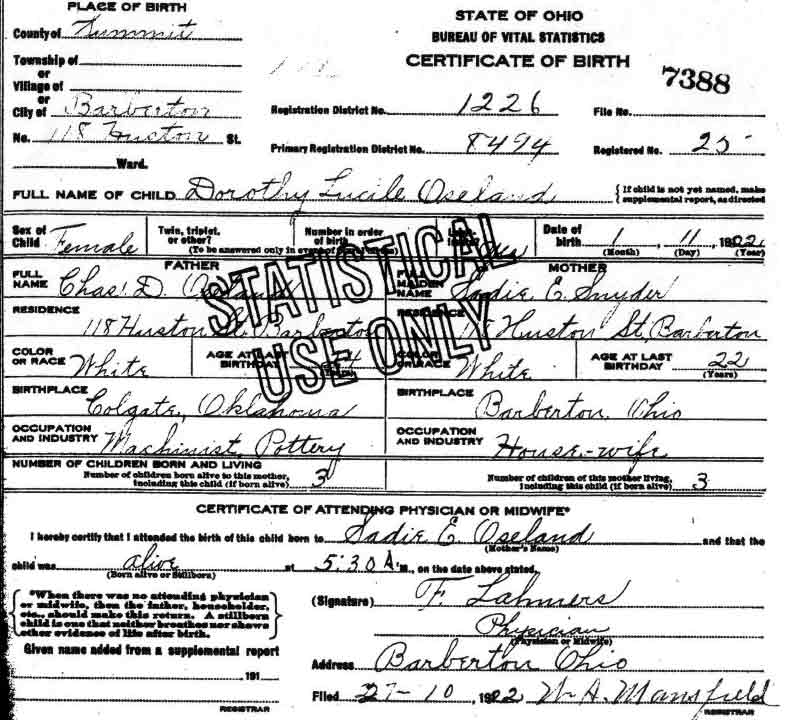 PLACE OF BIRTH
County of Summit
Township of
or
Village of
or
City of Barberton
No. 118 Huston St.
Ward.
STATE OF OHIO
BUREAU OF VITAL STATISTICS
CERTIFICATE OF BIRTH
7388
Registration District No. 1226 File No.
Primary Registration District No. 8494 Registered No. 25
FULL NAME OF CHILD Dorothy Lucile Oseland { If child is not yet named, make supplemental report, as directed
Sex of Child Female Twin, triplet, or other? Number in order of birth
(To be answered only in event of
Date of birth 1, 11, 1922
(Month) (Day) (Year)
STATISTICAL
USE ONLY
FATHER
FULL NAME Chas. D. Oseland
RESIDENCE
118 Huston St. Barberton
COLOR OR RACE White AGE AT LAST BIRTHDAY
BIRTHPLACE
Colgate, Oklahoma
OCCUPATION AND INDUSTRY Machinist, Pottery
MOTHER
FULL MAIDEN NAME Sadie E. Snyder
RESIDENCE
118 Huston St, Barberton
COLOR OR RACE White AGE AT LAST BIRTHDAY 22
(Years)
BIRTHPLACE
Barberton, Ohio
OCCUPATION AND INDUSTRY House-wife
NUMBER OF CHILDREN BORN AND LIVING
Number of children born alive to this mother, including this child (if born alive) 3
Number of children of this mother living, including this child (if born alive) 3
CERTIFICATE OF ATTENDING PHYSICIAN OR MIDWIFE*
I hereby certify that I attended the birth of this child born to Sadie E. Oseland and that the
(Mother's Name)
child was alive at 5:30 A.m., on the date above stated.
(Born alive or Stillborn)
*When there was no attending physician
or midwife, then the father, householder,
etc., should make this return. A stillborn
child is one that neither breathes nor shows
other evidence of life after birth.
Given name added from a supplemental report
191
REGISTRAR
(Signature) F. Lahmers
Physician
(Physician or Midwife)
Address Barberton Ohio
Filed 27-10, 1922 W. A. Mansfield
REGISTRAR